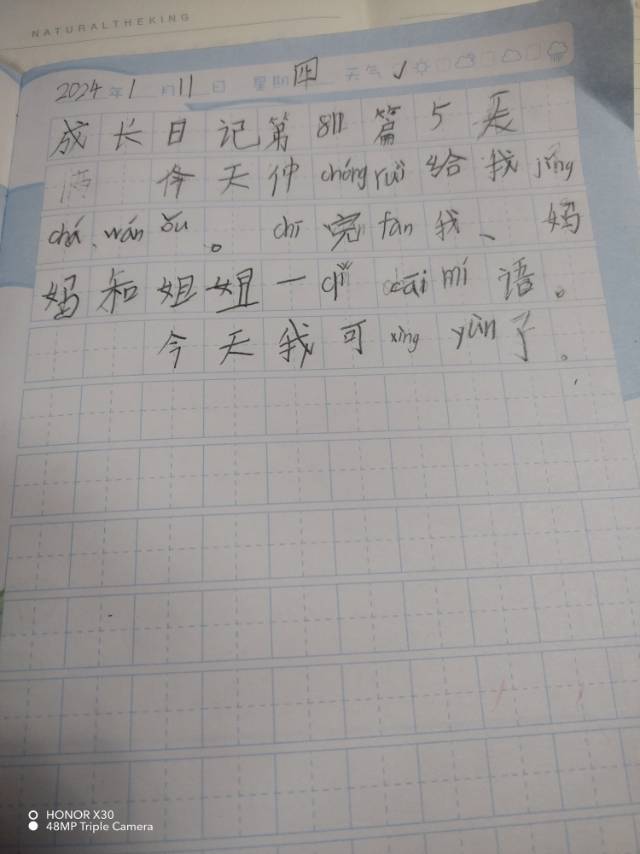 NATURALTHEKING
2024年1月11日 星期四 天气 √
成长日记第811篇5天
今天仲chóng ruì给我jǐng
chá、wán ǒu。chī完fan我、妈
妈和姐姐一qǐ cāi mí语。
今天我可xìng yùn了。
HONOR X30
48MP Triple Camera